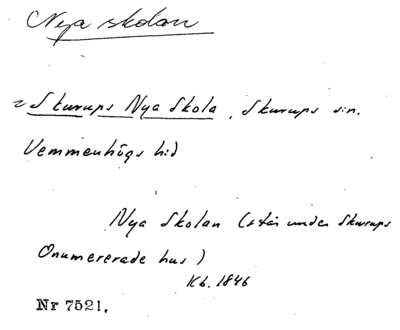 Nya skolan
= Skurups Nya Skola, Skurups sn.
Vemmenhögs hd
Nya Skolan (står under Skurups
Onumererade hus)
Kb. 1846
Nr 7521.